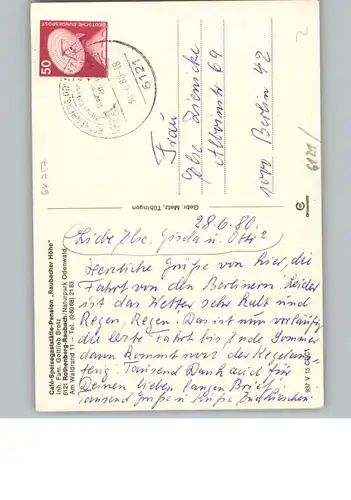 DEUTSCHE BUNDESPOST
50
6121
Frau
Else Zienicke
Albvinstr 69
1000 Berlin 42
6121/
61957
Gebr. Metz, Tübingen
Café-Speisegaststätte-Pension „Raubacher Höhe"
Inh. Fam. Gottlieb Bretz
6121 Rothenberg-Raubach/Naturpark Odenwald
Am Waldrand 11 — Tel. (06068) 21 83
28.6.80.
Liebe Else, Gisela u. Otti
Herzliche Grüße von hier, die
Fahrt von den Berlinern. Leider
ist das Wetter sehr kalt und
Regen, Regen. Das ist nun vorläufig
die letzte Fahrt bis Ende Sommer
dann kommt noch der
Tausend Dank auch für
Deinen lieben langen Brief.
Tausend Grüße u. Küße